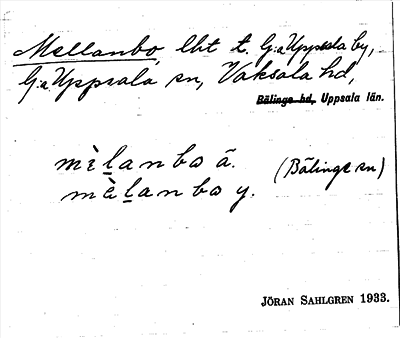 Mellanbo, lht t. G:a Uppsala by,
G:a Uppsala sn, Vaksala hd,
Bälinge hd, Uppsala län.
mèl̠anbo ä. (Bälinge sn)
mèl̠anbo y.
JÖRAN SAHLGREN 1933.